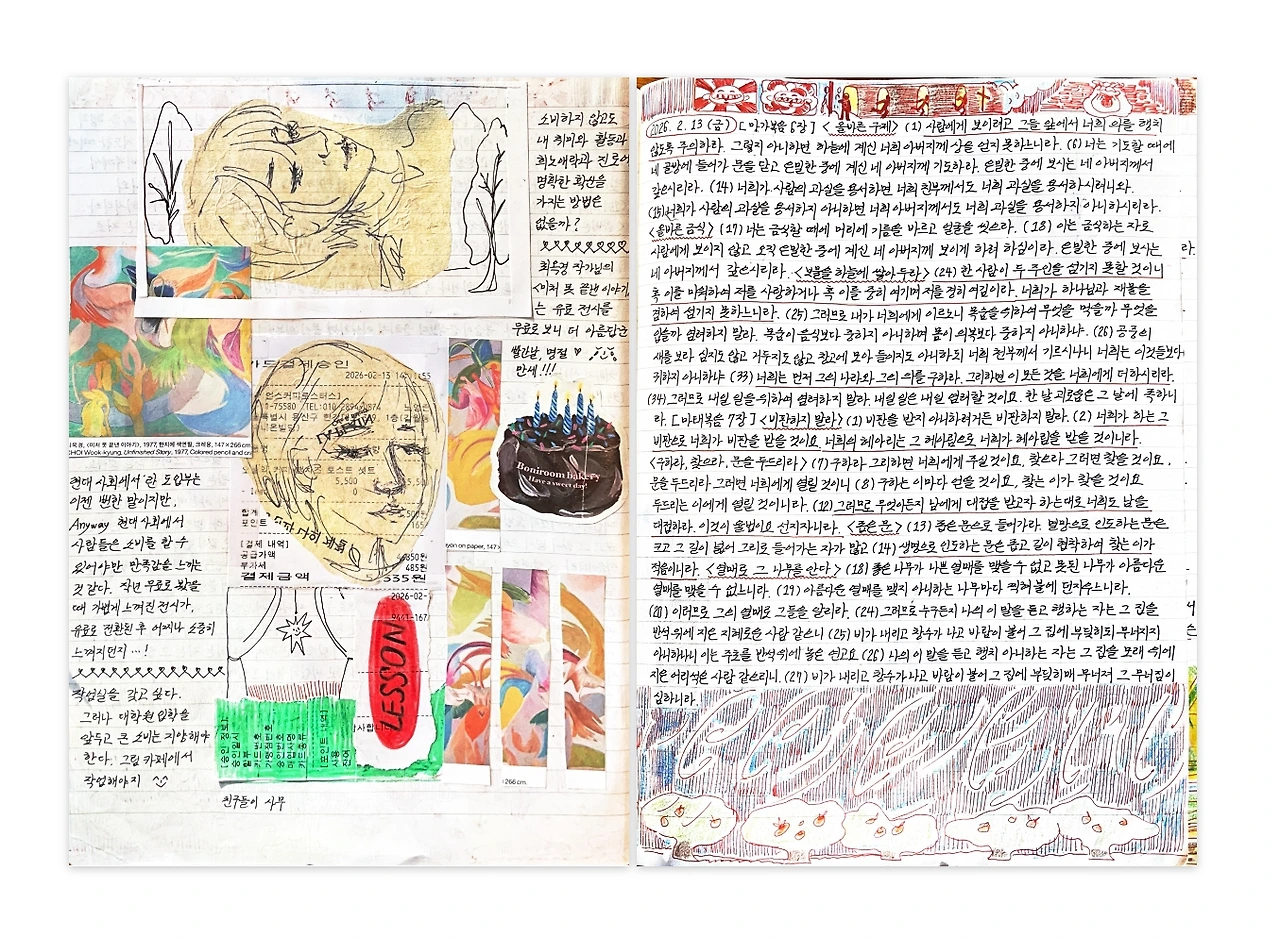 소비하지 않고도
내 취미와 활동과
희노애락과 진로에
명확한 확신을
가지는 방법은
없을까?
최욱경 작가님의
<미처 못 끝낸 이야기>
는 유료 전시를
무료로 보니 더 아름답군
빨간날, 명절 ♡
만세!!!
카드결제승인
2026-02-13 14:
언스커피로스터스]
5,500
합계
포인트
[결제 내역]
공급가액
부가세
결제금액
485원
2026-02-
LESSON
Boniroom bakery
Have a sweet day!
욱경, <미처 못 끝낸 이야기>, 1977, 한지에 색연필, 크레용, 147×266cm
CHOI Wook-kyung, Unfinished Story, 1977, Colored pencil and cr
ayon on paper, 147×
266cm.
현대 사회에서 란 도입부는
이젠 뻔한 말이지만,
Anyway 현대사회에서
사람들은 소비를 할 수
있어야만 만족감을 느끼는
것 같다. 작년 무료로 봤을
때 가볍게 느껴진 전시가,
유료로 전환된 후 어찌나 소중히
느껴지던지 …!
작업실을 갖고 싶다.
그러나 대학원 입학을
앞두고 큰 소비는 지양해야
한다. 그림 카페에서
작업해야지
친구들이 사무
2026. 2. 13 (금) [마가복음 6장] <올바른 구제> (1) 사람에게 보이려고 그들 앞에서 너희 의를 행치
않도록 주의하라. 그렇지 아니하면 하늘에 계신 너희 아버지께 상을 얻지 못하느니라. (6) 너는 기도할 때에
네 골방에 들어가 문을 닫고 은밀한 중에 계신 네 아버지께 기도하라. 은밀한 중에 보시는 네 아버지께서
갚으시리라. (14) 너희가 사람의 과실을 용서하면 너희 천부께서도 너희 과실을 용서하시려니와.
(15) 너희가 사람의 과실을 용서하지 아니하면 너희 아버지께서도 너희 과실을 용서하지 아니하시리라.
<올바른 금식> (17) 너는 금식할 때에 머리에 기름을 바르고 얼굴을 씻으라. (18) 이는 금식하는 자로
사람에게 보이지 않고 오직 은밀한 중에 계신 네 아버지께 보이게 하려 하심이라. 은밀한 중에 보시는
네 아버지께서 갚으시리라. <보물을 하늘에 쌓아두라> (24) 한 사람이 두 주인을 섬기지 못할 것이니
혹 이를 미워하며 저를 사랑하거나 혹 이를 중히 여기며 저를 경히 여김이라. 너희가 하나님과 재물을
겸하여 섬기지 못하느니라. (25) 그러므로 내가 너희에게 이르노니 목숨을 위하여 무엇을 먹을까 무엇을
입을까 염려하지 말라. 목숨이 음식보다 중하지 아니하며 몸이 의복보다 중하지 아니하냐. (26) 공중의
새를 보라 심지도 않고 거두지도 않고 창고에 모아 들이지도 아니하되 너희 천부께서 기르시나니 너희는 이것들보다
귀하지 아니하냐 (33) 너희는 먼저 그의 나라와 그의 의를 구하라. 그리하면 이 모든 것을 너희에게 더하시리라.
(34) 그러므로 내일 일을 위하여 염려하지 말라. 내일 일은 내일 염려할 것이요. 한 날 괴로움은 그 날에 족하니
라. [마태복음 7장] <비판하지 말라> (1) 비판을 받지 아니하려거든 비판하지 말라. (2) 너희가 하는 그
비판으로 너희가 비판을 받을 것이요. 너희의 헤아리는 그 헤아림으로 너희가 헤아림을 받을 것이니라.
<구하라, 찾으라, 문을 두드리라> (7) 구하라 그리하면 너희에게 주실것이요, 찾으라 그러면 찾을 것이요,
문을 두드리라 그러면 너희에게 열릴 것이니 (8) 구하는 이마다 얻을 것이요, 찾는 이가 찾을 것이요
두드리는 이에게 열릴 것이니라. (12) 그러므로 무엇이든지 남에게 대접을 받고자 하는대로 너희도 남을
대접하라. 이것이 율법이요 선지자니라. <좁은 문> (13) 좁은 문으로 들어가라. 멸망으로 인도하는 문은
크고 그 길이 넓어 그리로 들어가는 자가 많고 (14) 생명으로 인도하는 문은 좁고 길이 협착하여 찾는 이가
적음이니라. <열매로 그 나무를 안다> (18) 좋은 나무가 나쁜 열매를 맺을 수 없고 못된 나무가 아름다운
열매를 맺을 수 없느니라. (19) 아름다운 열매를 맺지 아니하는 나무마다 찍혀 불에 던지우느니라.
(20) 이러므로 그의 열매로 그들을 알리라. (24) 그러므로 누구든지 나의 이 말을 듣고 행하는 자는 그 집을
반석 위에 지은 지혜로운 사람 같으니 (25) 비가 내리고 창수가 나고 바람이 불어 그 집에 부딪히되 무너지지
아니하나니 이는 주초를 반석 위에 놓은 연고요 (26) 나의 이 말을 듣고 행치 아니하는 자는 그 집을 모래 위에
지은 어리석은 사람 같으리니. (27) 비가 내리고 창수가 나고 바람이 불어 그 집에 부딪히매 무너져 그 무너짐이
심하니라.